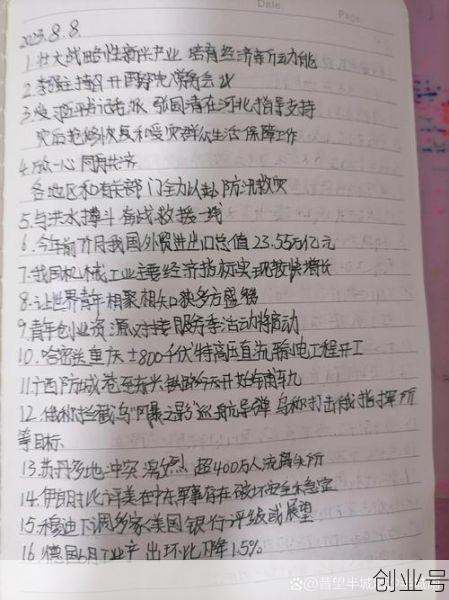 Date.
Page.
2023.8.8.
1.壮大战略性新兴产业 培育经济新动能
2.李强主持召开国务院常务会议
3.受习近平总书记委派 张国清在河北指导支持
灾后抢修恢复和受灾群众生活保障工作
4.万众一心 同舟共济
各地区和有关部门全力以赴防汛救灾
5.与洪水搏斗 奋战救援一线
6.今年前7月我国外贸进出口总值23.55万亿元
7.我国机械工业主要经济指标实现较快增长
8.让世界青年相聚相知 获多方盛赞
9.青年创业资源对接服务季活动将启动
10.哈密至重庆±800千伏特高压直流输电工程开工
11.广西防城港至东兴铁路今天开始铺轨
12.俄称拦截乌"风暴之影"巡航导弹 乌称打击俄指挥所
等目标
13.苏丹多地冲突激烈 超400万人流离失所
14.伊朗批评美在中东军事存在破坏安全稳定
15.穆迪下调多家美国银行评级或展望
16.德国6月工业产出环比下降1.5%
创业号